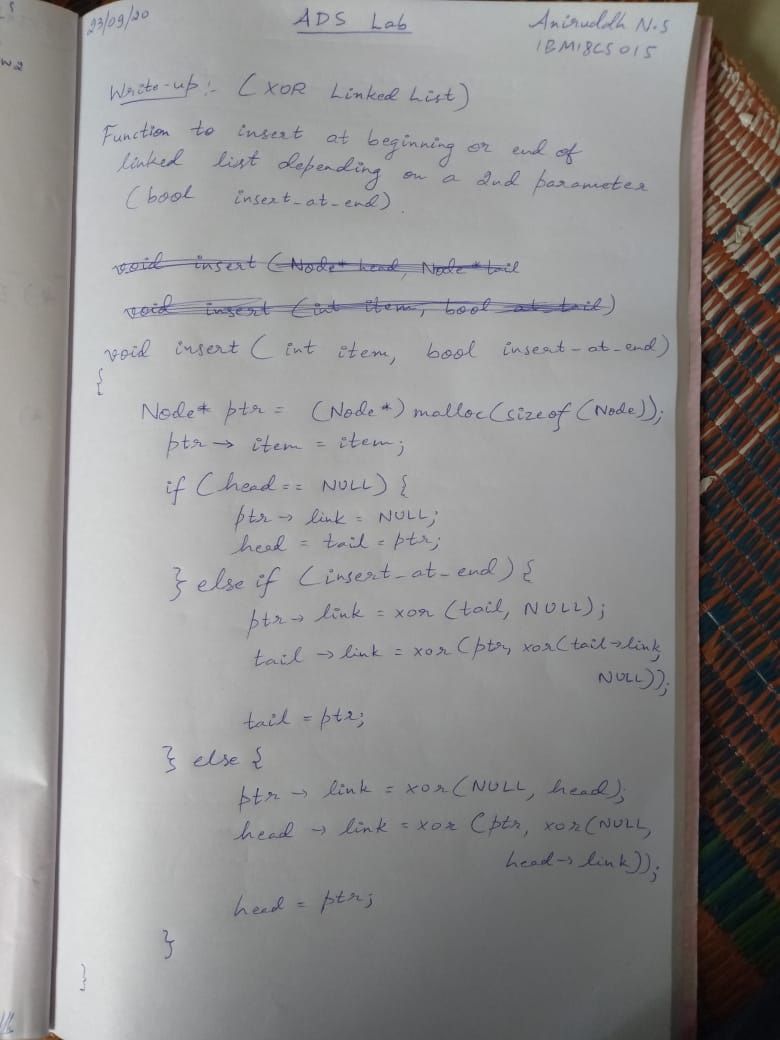 23/09/20
ADS Lab
Aniruddh N.S
1BM18CS015
Write-up :- (XOR Linked List)
Function to insert at beginning or end of
linked list depending on a 2nd parameter
(bool insert_at_end)
void insert (Node* head, Node* tail
void insert (int item, bool at_tail)
void insert (int item, bool insert_at_end)
{
Node* ptr = (Node*) malloc(sizeof(Node));
ptr → item = item;
if (head == NULL) {
ptr → link = NULL;
head = tail = ptr;
} else if (insert_at_end) {
ptr → link = xor (tail, NULL);
tail → link = xor (ptr, xor(tail→link,
NULL));
tail = ptr;
} else {
ptr → link = xor(NULL, head);
head → link = xor (ptr, xor(NULL,
head→link));
head = ptr;
}
}